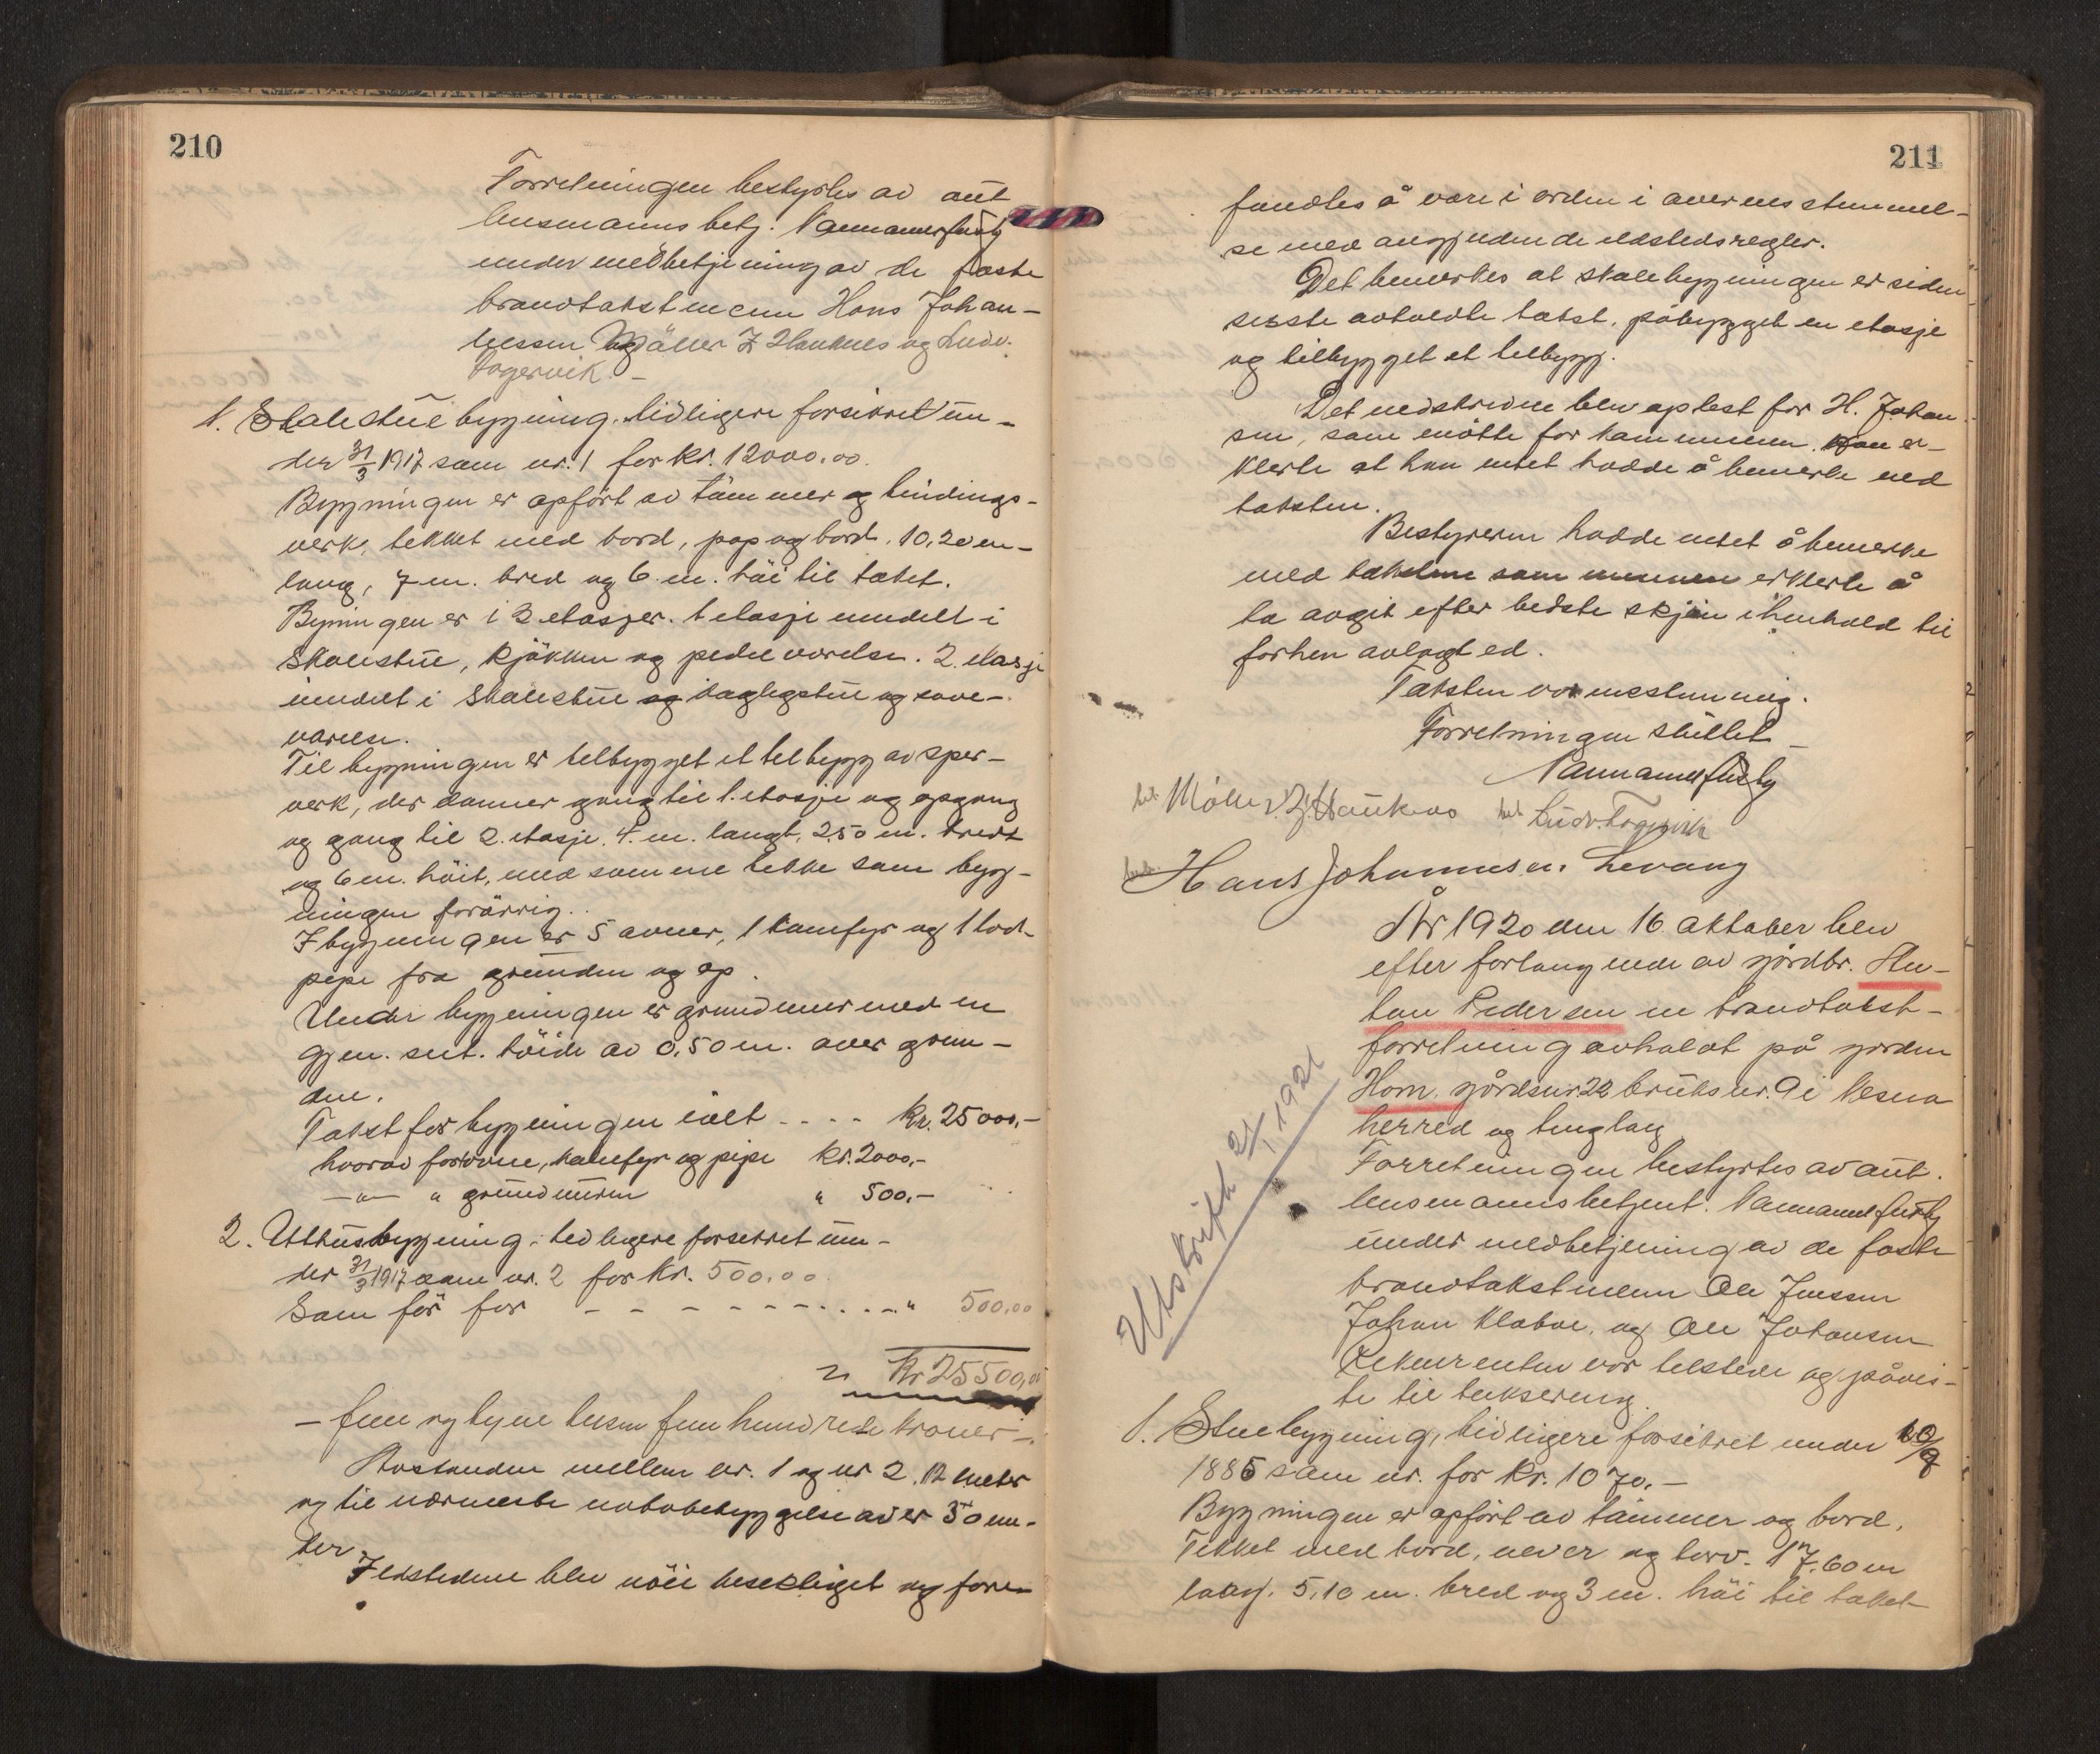 210
Forretningen bestyrtes av aut
lensmannsbetj. Nannamefusby
under medbetjening av de faste
brandtakstmenn Hans Johan-
nessen og Möller Z Hauknes og Ludv.
Fagervik. -
1. Skolestuebygning, tidligere forsikret un-
der 31/3 1917 som nr. 1 for kr. 12000.00.
Bygningen er opfört av tömmer og bindings-
verk, tekket med bord, pap og bord. 10,20 m-
lang, 7 m. bred og 6 m. höi til taket.
Bygningen er i 2 etasjer. 1 etasje inndelt i
Skolestue, kjökken og pedelværelse. 2. etasje
inndelt i Skolestue og dagligstue og sove-
værelse.
Til bygningen er tilbygget et tilbygg av sper-
verk, der danner gang til 1. etasje og opgang
og gang til 2. etasje. 4. m. langt, 2,50 m. bredt
og 6 m. höit, med samme tekke som byg-
ningen forövrig.
I bygningen er 5 ovner, 1 komfyr og 1 lod-
pipe fra grunden og op.
Under bygningen er grundmur med en
gjen. snt. höide av 0,50 m. over grun-
den.
Takst for bygningen ialt - - - - Kr. 25000,-
hvorav for ovne, komfyr og pipe Kr. 2000,-
-"- " grundmuren " 500,-
2. Uthusbygning, tidligere forsikret un-
der 31/3 1917 som nr. 2 for Kr. 500.00
Som för for - - - - - - - . . . . - " 500,00
Kr 25500,00
- fem og tyve tusen fem hundrede kroner -.
Avstanden mellem nr. 1 og nr 2, 12 meter
og til nærmeste nabobebyggelse over 50 me-
ter.
Ildstedene blev nöie besiktiget og fore-
211
fandtes å være i orden i overensstemmel-
se med angjeldende ildstedsregler.
Det bemerkes at skolebygningen er siden
siste avholdte takst, påbygget en etasje
og tilbygget et tilbygg.
Det nedskrevne blev oplest for H. Johan
sen, som mötte for kommunen. Han er-
klerte at han intet hadde å bemerke ved
taksten.
Bestyreren hadde intet å bemerke
med taksten som mennen erklerte å
ha avgit efter bedste skjön i henhold til
forhen avlagt ed.
Taksten var enstemmig.
Forretningen sluttet -
Nannamefusby
Möller Z. Hauknes Ludv. Fagervik
Hans Johannesen Levang
År 1920 den 16 oktober blev
efter forlangende av gårdbr. Hu-
tan Pedersen en brandtakst-
forretning avholdt på gården
Horn, gårdsnr. 22 bruksnr. 9 i Nesna
herred og tinglag
Forretningen bestyrtes av aut.
lensmannsbetjent. Nannamefusby
under medbetjening av de faste
brandtakstmenn Ole Jenssen
Johan Klaboe, og Ole Johansen
Rekvirenten var tilstede og påvis-
te til taksering.
Utskrift 21/1 1921
1. Stuebygning, tidligere forsikret under 10/9
1885 som nr. for Kr. 1070.-
Bygningen er opfört av tömmer og bord.
Tekket med bord, never og torv. 17,60 m
lang. 5,10 m. bred og 3 m. höi til taket